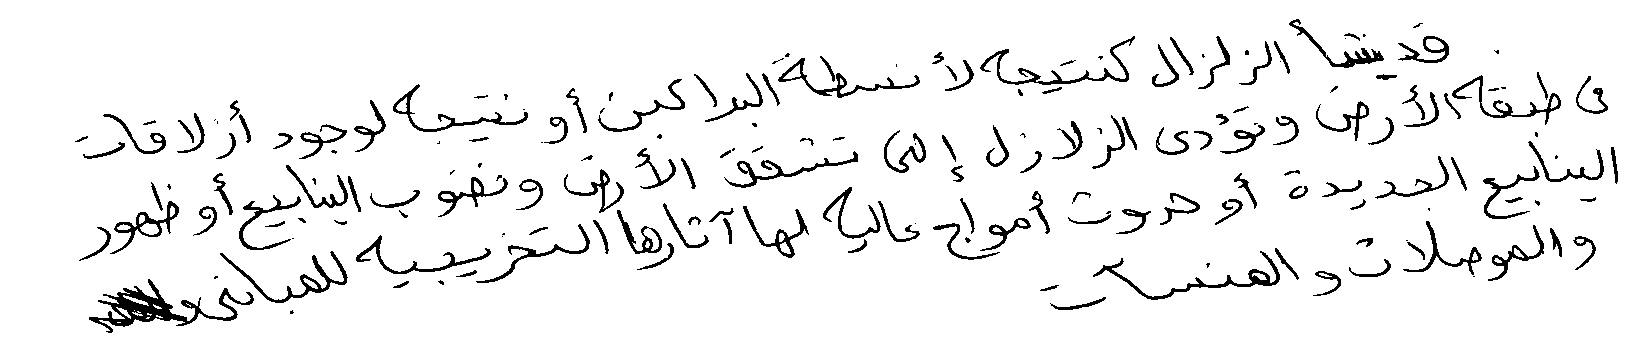 قد ينشأ الزلزال كنتيجه لأنسطة البراكين أو نتيجه لوجود أنزلاقات
فى طبقه الأرض وتؤدى الزلازل إلى تشقق الأرض ونضوب الينابيع أو ظهور
الينابيع الجديدة أو حدوث أمواج عاليه لها آثارها التخريبيه للمبانى
والموصلات والمنسآت